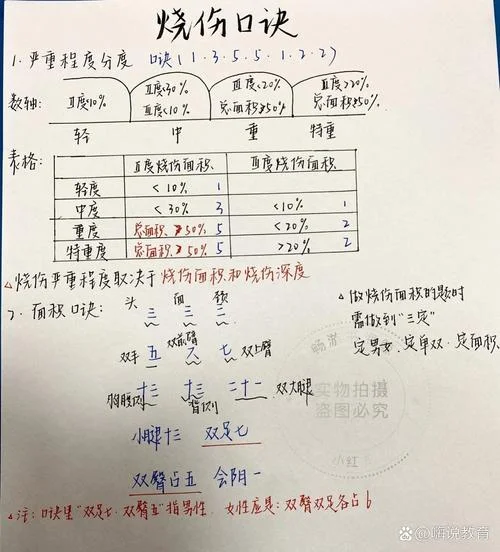 烧伤口诀
1. 严重程度分度 口诀(1.3.5.5.1.2.2)
数轴: Ⅱ度10% Ⅱ度<30% Ⅲ度<10% Ⅲ度<20% 总面积≥50% Ⅲ度>20% 总面积≥50%
轻 中 重 特重
表格:
Ⅱ度烧伤面积 Ⅲ度烧伤面积
轻度 <10% 1
中度 <30% 3 <10% 1
重度 总面积≥50% 5 <20% 2
特重度 总面积≥50% 5 >20% 2
△烧伤严重程度取决于烧伤面积和烧伤深度
2. 面积口诀: 头 面 颈
三 三 三
双手 五 双前臂 六 七 双上臂
胸腹侧 十三 十三 背侧 二十一 双大腿
小腿十三 双足七
双臀占五 会阴一
△做烧伤面积的题时
需做到“三定”
定男女.定单双.定面积.
△注:口诀里“双足七.双臀五”指男性. 女性应是:双臀双足各占6
实物拍摄
盗图必究
小红
嗨说教育